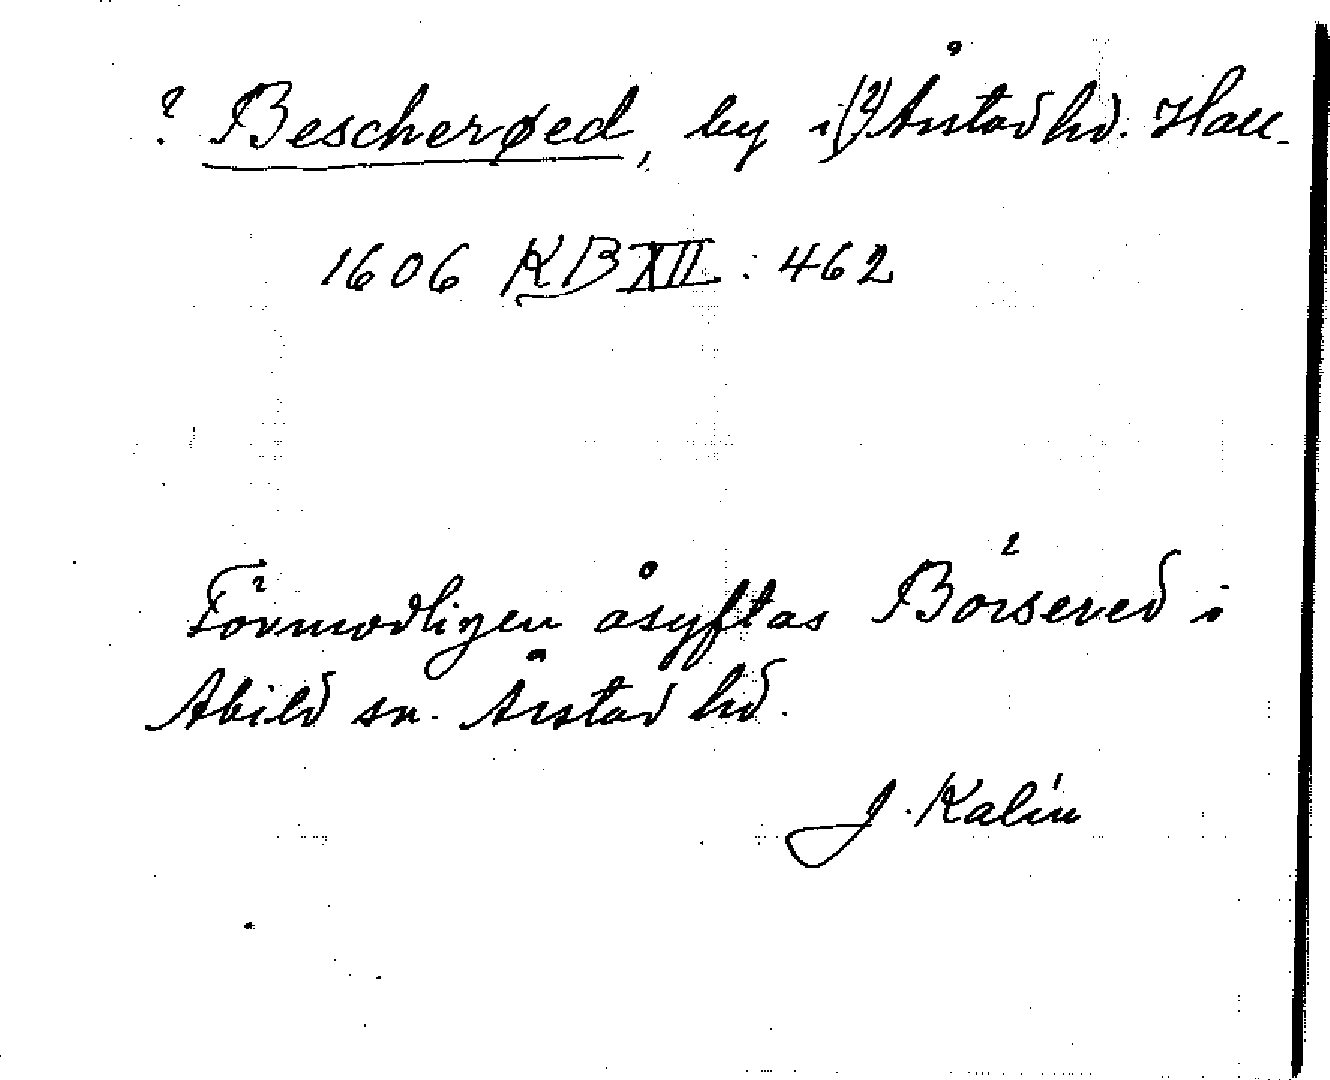 ? Bescherøed, by i (?) Årstad hd. Hall.
1606 KB XII: 462
Förmodligen åsyftas Börsered i
Abild sn. Årstad hd.
J. Kalén